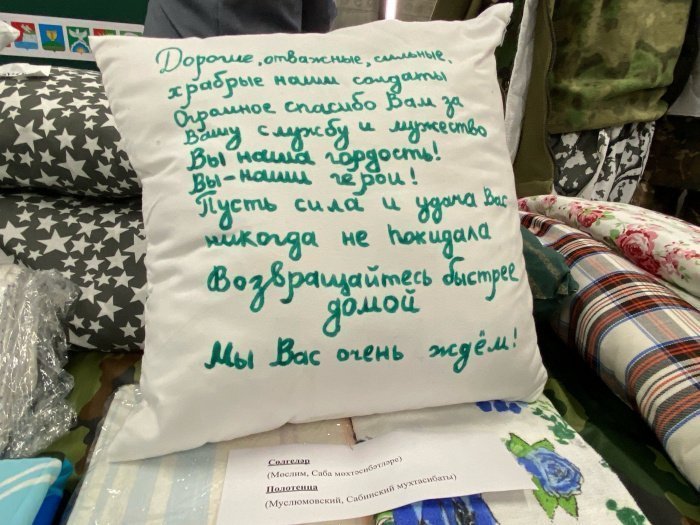 Дорогие, отважные, сильные,
храбрые наши солдаты
Огромное спасибо Вам за
Вашу службу и мужество
Вы наша гордость!
Вы - наши герои!
Пусть сила и удача Вас
никогда не покидала
Возвращайтесь быстрее
домой
Мы Вас очень ждём!
Сөлгеләр
(Мөслим, Саба мөхтәсибәтләре)
Полотенца
(Муслюмовский, Сабинский мухтасибаты)